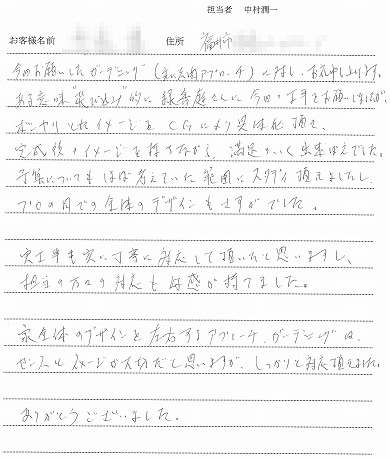 担当者 中村潤一
お客様名前 住所 福井市
今回お願いしたガーデニング(主に玄関アプローチ)に対し、お礼申し上げます。
ある意味"飛び込み"的に緑香庭さんに今回の工事をお願いしましたが、
ボンヤリとしたイメージをCGにより具体化頂き、
完成後のイメージを持ちながら、満足のいく出来ばえでした。
予算についてもほぼ考えていた範囲にスタディ頂きましたし、
プロの目での全体のデザインもさすがでした。
実工事も実に丁寧に対応して頂いたと思いますし、
担当の方々の対応も好感が持てました。
家全体のデザインを左右するアプローチ、ガーデニングは、
センスとイメージが大切だと思いますが、しっかりと対応頂きました。
ありがとうございました。